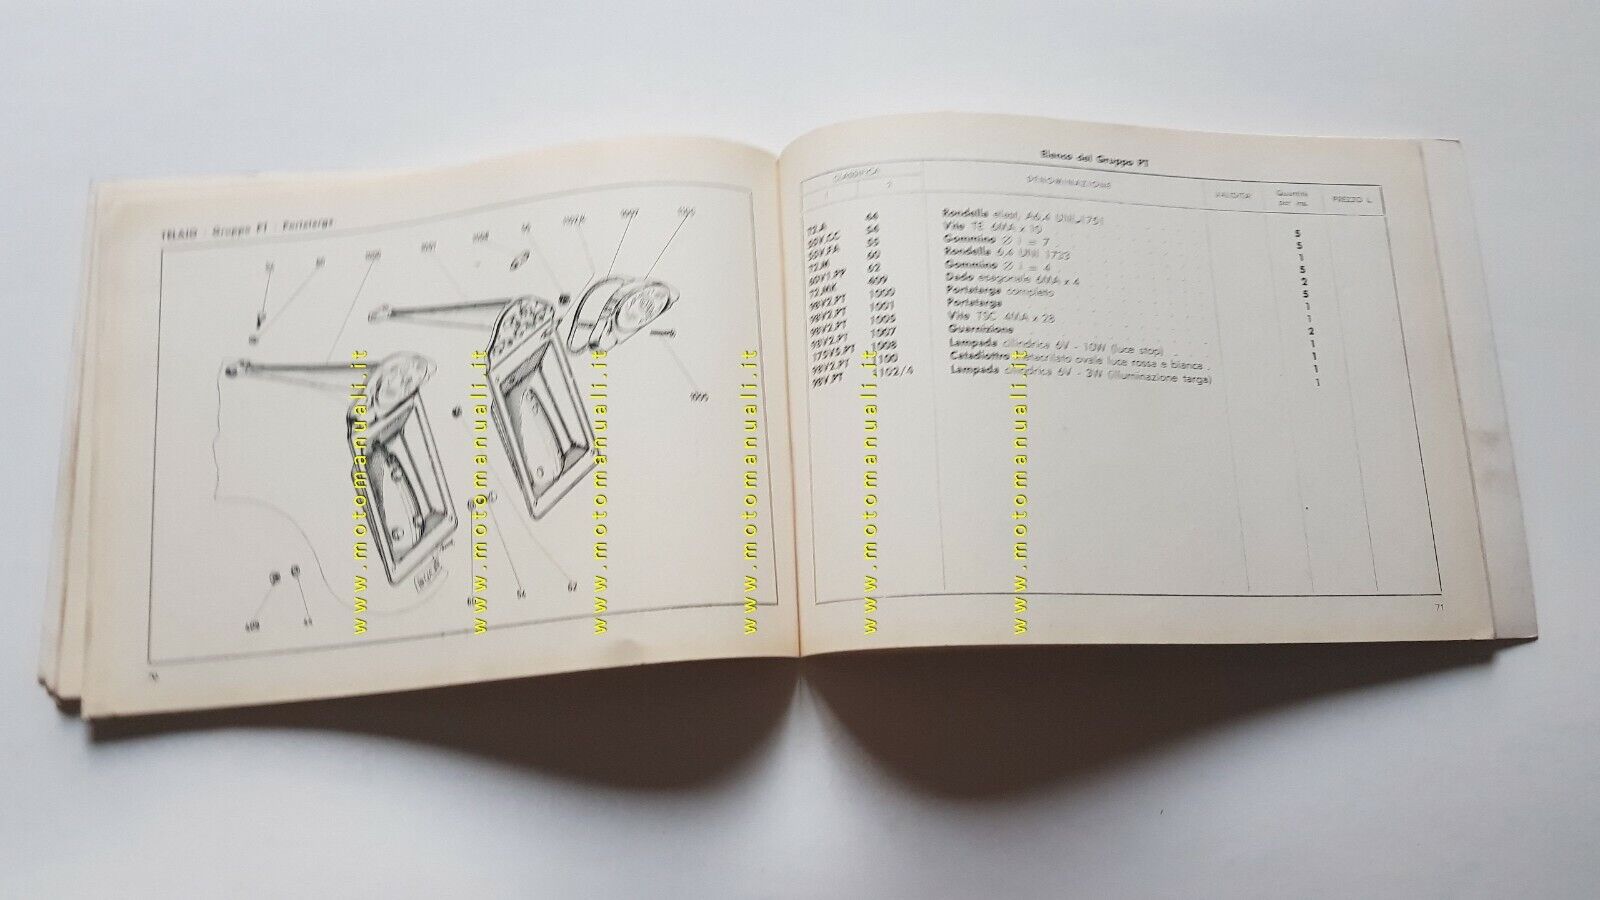 TELAIO - Gruppo PT - Portatarga
1008
1001
1007
1000
409
44
54
62
70
www.motomanuali.it
www.motomanuali.it
www.motomanuali.it
www.motomanuali.it
www.motomanuali.it
www.motomanuali.it
Elenco del Gruppo PT
CLASSIFICA
1 2
DENOMINAZIONE
VALIDITÀ
Quantità per ms.
PREZZO L.
T2.A 44 Rondella elast. A6,4 UNI 1751 5
55V.CC 54 Vite TE 6MA x 10 5
55V.FA 55 Gommino Ø i = 7 1
T2.M 60 Rondella 6,4 UNI 1733 5
62 Gommino Ø i = 4 2
T2.MK 409 Dado esagonale 6MA x 4 5
98V2.PT 1000 Portatarga completo 1
98V2.PT 1001 Portatarga 1
98V2.PT 1005 Vite TSC 4MA x 28 2
98V2.PT 1007 Guarnizione 1
175VS.PT 1008 Lampada cilindrica 6V - 10W (luce stop) 1
98V2.PT 1100 Catadiottro metacrilato ovale luce rossa e bianca 1
98V.PT 1102/4 Lampada cilindrica 6V - 3W (illuminazione targa) 1
71